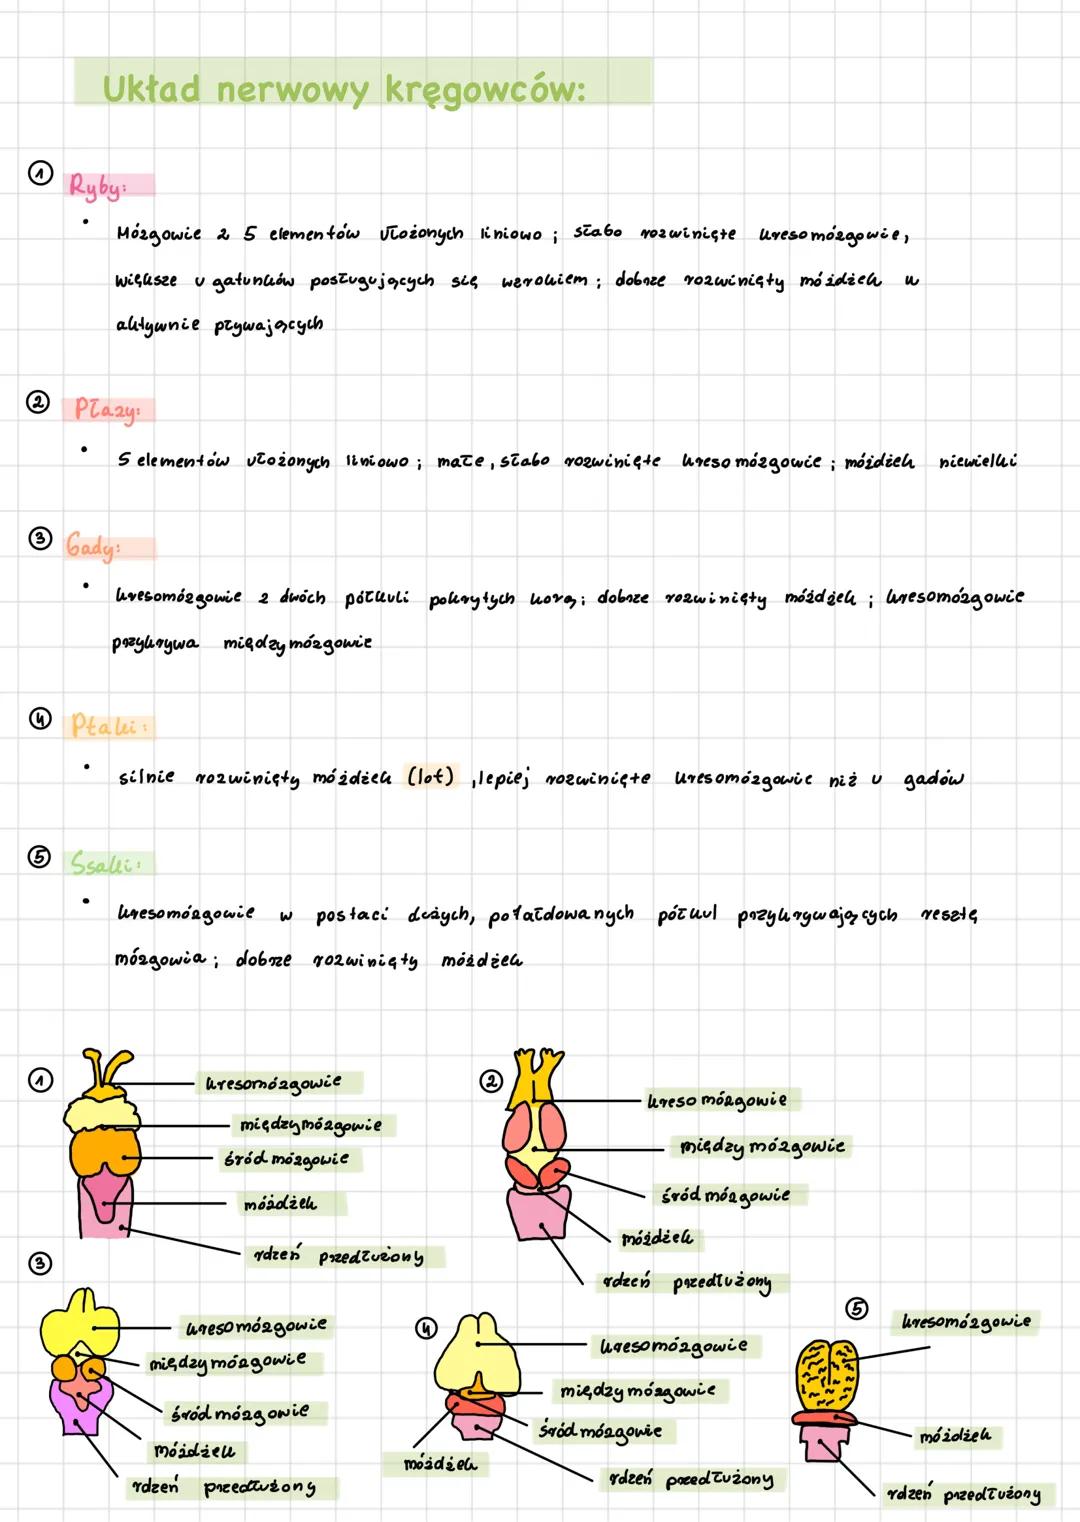 Układ nerwowy kręgowców:
① Ryby:
• Mózgowie z 5 elementów ułożonych liniowo ; słabo rozwinięte kresomózgowie,
większe u gatunków posługujących się wzrokiem ; dobrze rozwinięty móżdżek u
aktywnie pływających
② Płazy:
• 5 elementów ułożonych liniowo ; małe, słabo rozwinięte kresomózgowie ; móżdżek niewielki
③ Gady:
• kresomózgowie z dwóch półkuli pokrytych korą ; dobrze rozwinięty móżdżek ; kresomózgowie
przykrywa międzymózgowie
④ Ptaki:
• silnie rozwinięty móżdżek (lot), lepiej rozwinięte kresomózgowie niż u gadów
⑤ Ssaki:
• kresomózgowie w postaci dużych, pofałdowanych półkul przykrywających resztę
mózgowia ; dobrze rozwinięty móżdżek
①
kresomózgowie
międzymózgowie
śródmózgowie
móżdżek
rdzeń przedłużony
②
kresomózgowie
międzymózgowie
śródmózgowie
móżdżek
rdzeń przedłużony
③
kresomózgowie
międzymózgowie
śródmózgowie
móżdżek
rdzeń przedłużony
④
kresomózgowie
międzymózgowie
śródmózgowie
móżdżek
rdzeń przedłużony
⑤
kresomózgowie
móżdżek
rdzeń przedłużony